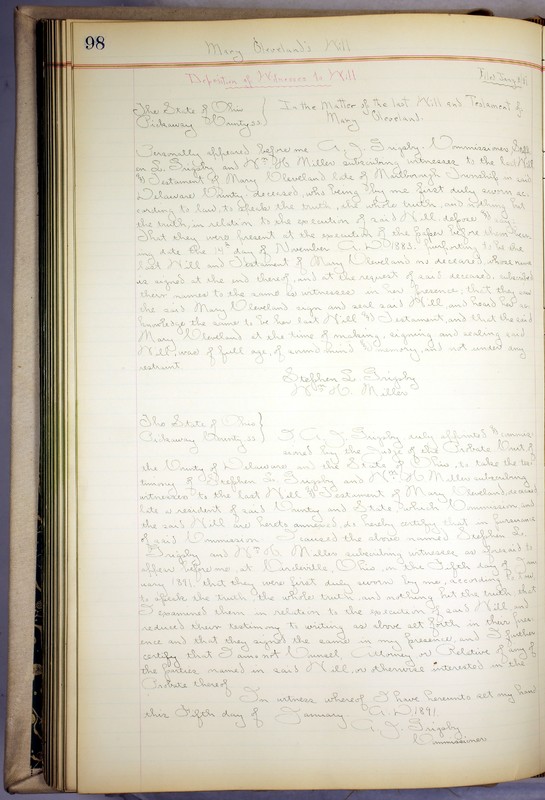 98
Mary Cleveland's Will
Deposition of Witnesses to Will
Filed Jany
The State of Ohio
Pickaway County ss
In the Matter of the last Will and Testament of
Mary Cleveland.
Personally appeared before me A. J. Grigsby Commissioner Steph
en L. Grigsby and Wm H. Miller subscribing witnesses to the last Will
& Testament of Mary Cleveland late of Marlborough Township in said
Delaware County, deceased, who being by me first duly sworn ac-
cording to law, to speak the truth, the whole truth, and nothing but
the truth, in relation to the execution of said Will, depose & say
That they were present at the execution of the paper before them bear
ing date the 14th day of November A.D. 1883 purporting to be the
last Will and Testament of Mary Cleveland now deceased whose name
is signed at the end thereof, and at the request of said deceased, subscribed
their names to the same as witnesses in her presence, that they saw
the said Mary Cleveland sign and seal said Will and heard her ac-
knowledge the same to be her last Will & Testament, and that the said
Mary Cleveland at the time of making, signing and sealing said
Will, was of full age, of sound mind & memory, and not under any
restraint
Stephen L. Grigsby
Wm H. Miller
The State of Ohio
Pickaway County ss
I, A. J. Grigsby duly appointed & commis-
sioned by the Judge of the Probate Court of
the County of Delaware in the State of Ohio, to take the tes-
timony of Stephen L. Grigsby and Wm H. Miller subscribing
witnesses to the last Will & Testament of Mary Cleveland, deceased
late a resident of said County and State which Commission and
the said Will are hereto annexed, do hereby certify that in pursuance
of said Commission I caused the above named Stephen L.
Grigsby and Wm H. Miller subscribing witnesses as aforesaid to
appear before me, at Circleville, Ohio, on the Fifth day of Jan
uary 1891 that they were first duly sworn by me, according to law,
to speak the truth, the whole truth, and nothing but the truth, that
I examined them in relation to the execution of said Will and
reduced their testimony to writing as above set forth in their pres-
ence and that they signed the same in my presence, and I further
certify that I am not Counsel, Attorney or Relative of any of
the parties named in said Will, or otherwise interested in the
Probate thereof
In witness whereof I have hereunto set my hand
this Fifth day of January A.D. 1891
A. J. Grigsby
Commissioner